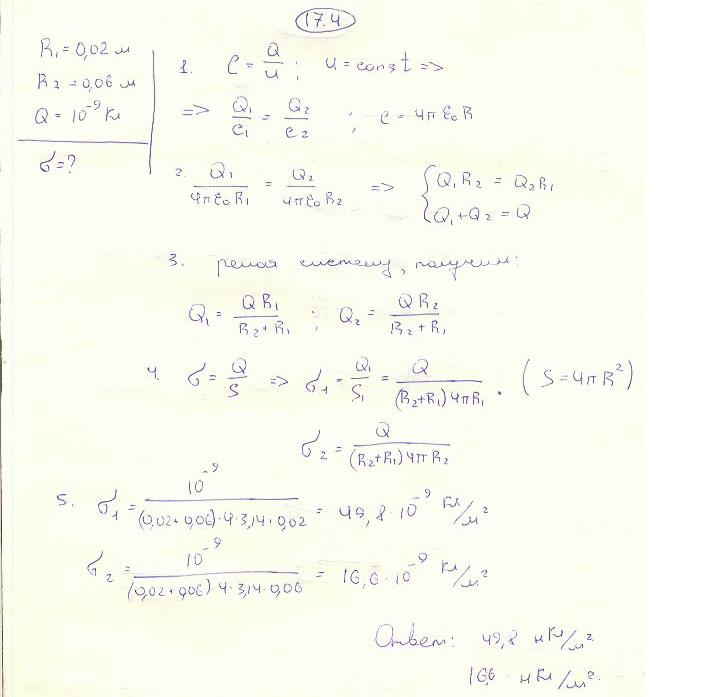 17.4
R₁ = 0,02 м
R₂ = 0,06 м
Q = 10⁻⁹ Кл
σ = ?
1. C = Q/U ; U = const =>
=> Q₁/C₁ = Q₂/C₂ ; C = 4πε₀R
2. Q₁/4πε₀R₁ = Q₂/4πε₀R₂ => { Q₁R₂ = Q₂R₁
Q₁+Q₂ = Q
3. решая систему, получим:
Q₁ = QR₁/R₂+R₁ ; Q₂ = QR₂/R₂+R₁
4. σ = Q/S => σ₁ = Q₁/S₁ = Q/(R₂+R₁)4πR₁ . (S=4πR²)
σ₂ = Q/(R₂+R₁)4πR₂
5. σ₁ = 10⁻⁹/(0,02+0,06)·4·3,14·0,02 = 49,8·10⁻⁹ Кл/м²
σ₂ = 10⁻⁹/(0,02+0,06)·4·3,14·0,06 = 16,6·10⁻⁹ Кл/м²
Ответ: 49,8 нКл/м²
16,6 нКл/м².